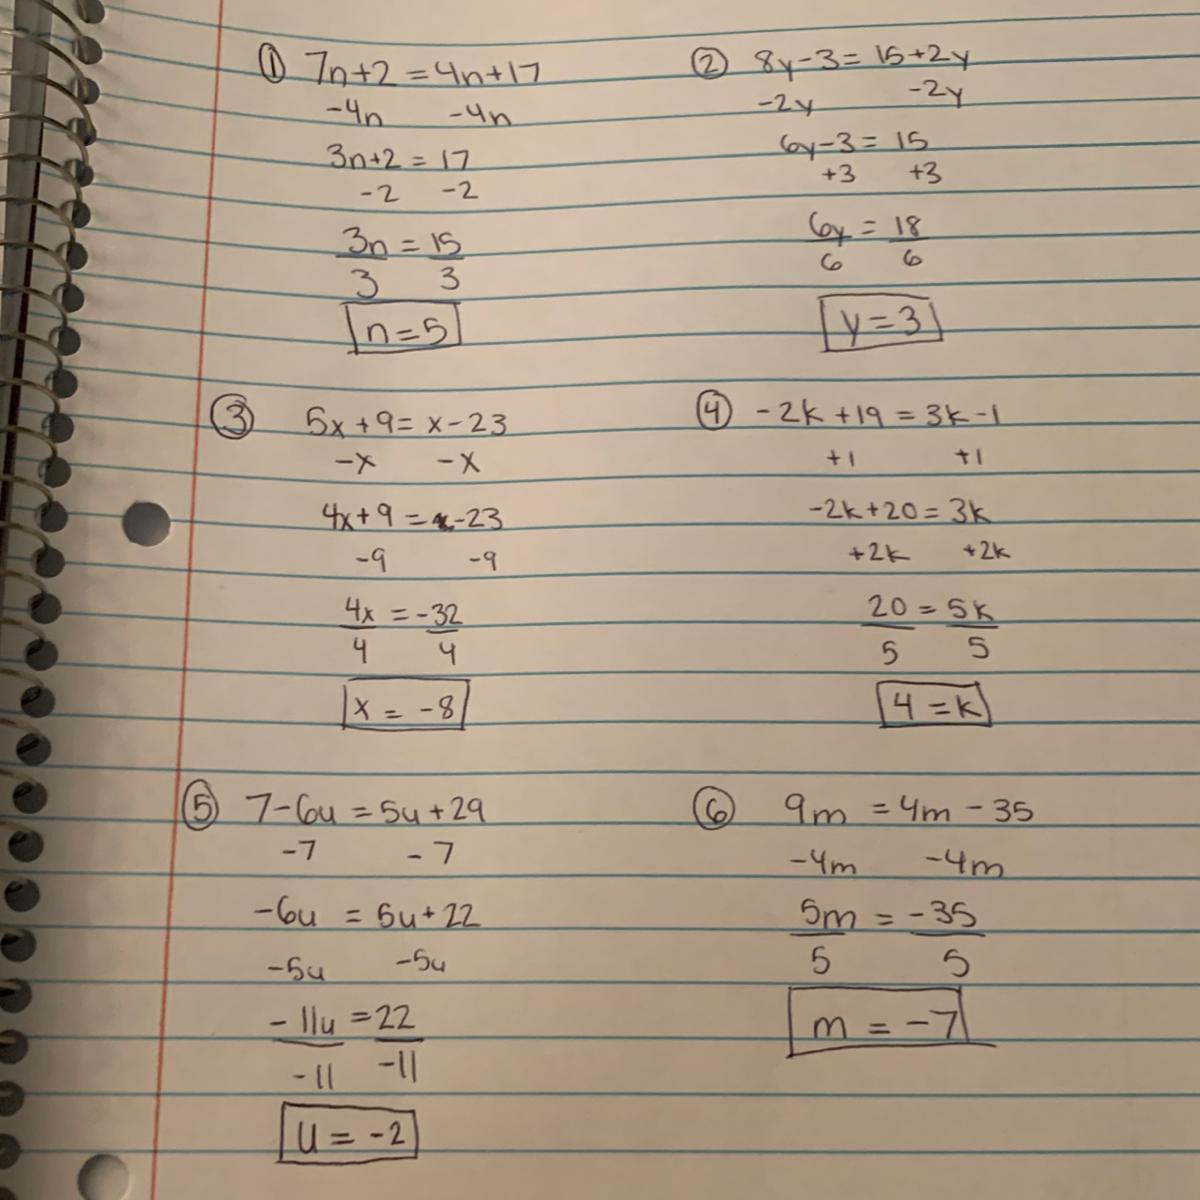 ① 7n+2 = 4n+17
-4n -4n
3n+2 = 17
-2 -2
3n = 15
3 3
n = 5
② 8y-3 = 15+2y
-2y -2y
6y-3 = 15
+3 +3
6y = 18
6 6
y = 3
③ 5x+9 = x-23
-x -x
4x+9 = -23
-9 -9
4x = -32
4 4
x = -8
④ -2k+19 = 3k-1
+1 +1
-2k+20 = 3k
+2k +2k
20 = 5k
5 5
4 = k
⑤ 7-6u = 5u+29
-7 -7
-6u = 5u+22
-5u -5u
-11u = 22
-11 -11
u = -2
⑥ 9m = 4m-35
-4m -4m
5m = -35
5 5
m = -7